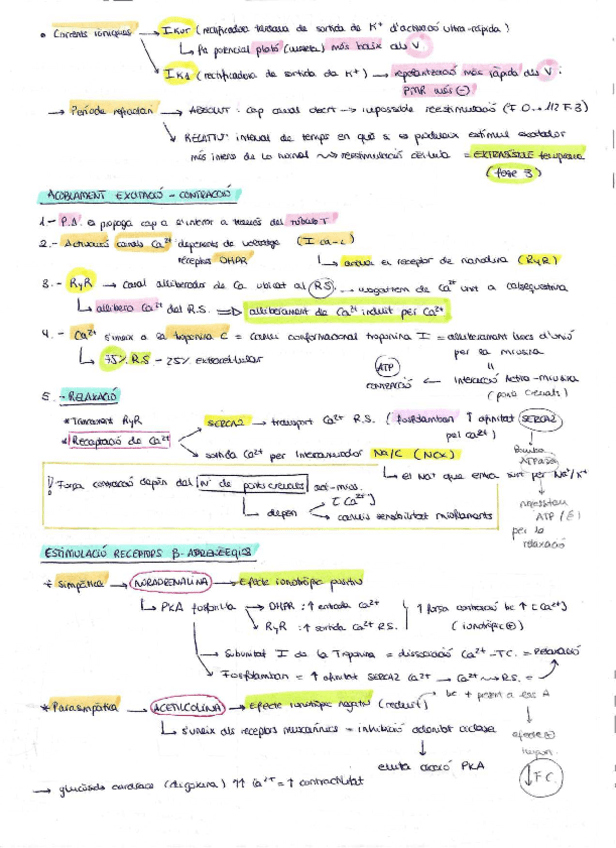 • Corrents iòniques → IKur (rectificadora tardana de sortida de K⁺ d'activació ultra-ràpida)
↳ Fa potencial plató (meseta) més baix als V
IK1 (rectificadora de sortida de K⁺) → repolarització més ràpida als V :
PMR més ⊖
→ Període refractari → ABSOLUT: cap canal obert → impossible reestimulació (F0 → 1/2 F3)
↘ RELATIU: interval de temps en què si es produeix estímul excitador
més intens de lo normal ⇝ reestimulació cèl·lula = EXTRASÍSTOLE
(fase 3)
ACOBLAMENT EXCITACIÓ - CONTRACCIÓ
1.- P.A. es propaga cap a l'interior a través del túbuls T
2.- Activació canals Ca²⁺ depenents de voltatge (I Ca-L)
receptors DHPR ↳ activen el receptor de rianodina (RyR)
3.- RyR → canal alliberador de Ca ubicat al RS → Ca²⁺ unit a calsequestrina
↳ allibera Ca²⁺ del R.S. ⇒ alliberament de Ca²⁺ induït per Ca²⁺
4.- Ca²⁺ s'uneix a la troponina C = canvi conformacional troponina I = alliberament llocs d'unió
↳ 75% R.S - 25% extracel·lular per la miosina
ATP
CONTRACCIÓ ← Interacció Actina-miosina
(ponts creuats)
5.- RELAXACIÓ
* Tancament RyR
* Recaptació de Ca²⁺ → SERCA2 → transport Ca²⁺ R.S. (fosfolamban ↑ afinitat SERCA2
pel Ca²⁺)
↘ sortida Ca²⁺ per intercanviador Na/C (NCX)
↳ el Na⁺ que entra surt per Na⁺/K⁺
Bomba
ATPasa
↓
necessiten
ATP (E)
per la
relaxació
! Força contracció depèn del nº de ponts creuats act-mios.
↳ depèn [Ca²⁺]
canvis sensibilitat miofilaments
ESTIMULACIÓ RECEPTORS β-ADRENÈRGICS
* Simpàtica → NORADRENALINA → Efecte ionotròpic positiu
↳ PKA fosforila → DHPR: ↑ entrada Ca²⁺
RyR: ↑ sortida Ca²⁺ R.S.
↑ força contracció bc ↑ [Ca²⁺]
(ionotròpic ⊕)
→ Subunitat I de la Troponina = dissociació Ca²⁺-TC. = RELAXACIÓ
↘ Fosfolamban = ↑ afinitat SERCA2 Ca²⁺ → Ca²⁺ → R.S. =
* Parasimpàtica → ACETILCOLINA → Efecte ionotròpic negatiu (reduït)
bc + present a les A
↳ s'uneix als receptors muscarínics = inhibició adenilat ciclasa
↓
evita acció PKA
efecte ⊕
↓ F.C.
→ glucòsids cardíacs (digoxina) ↑↑ Ca²⁺ = ↑ contractilitat